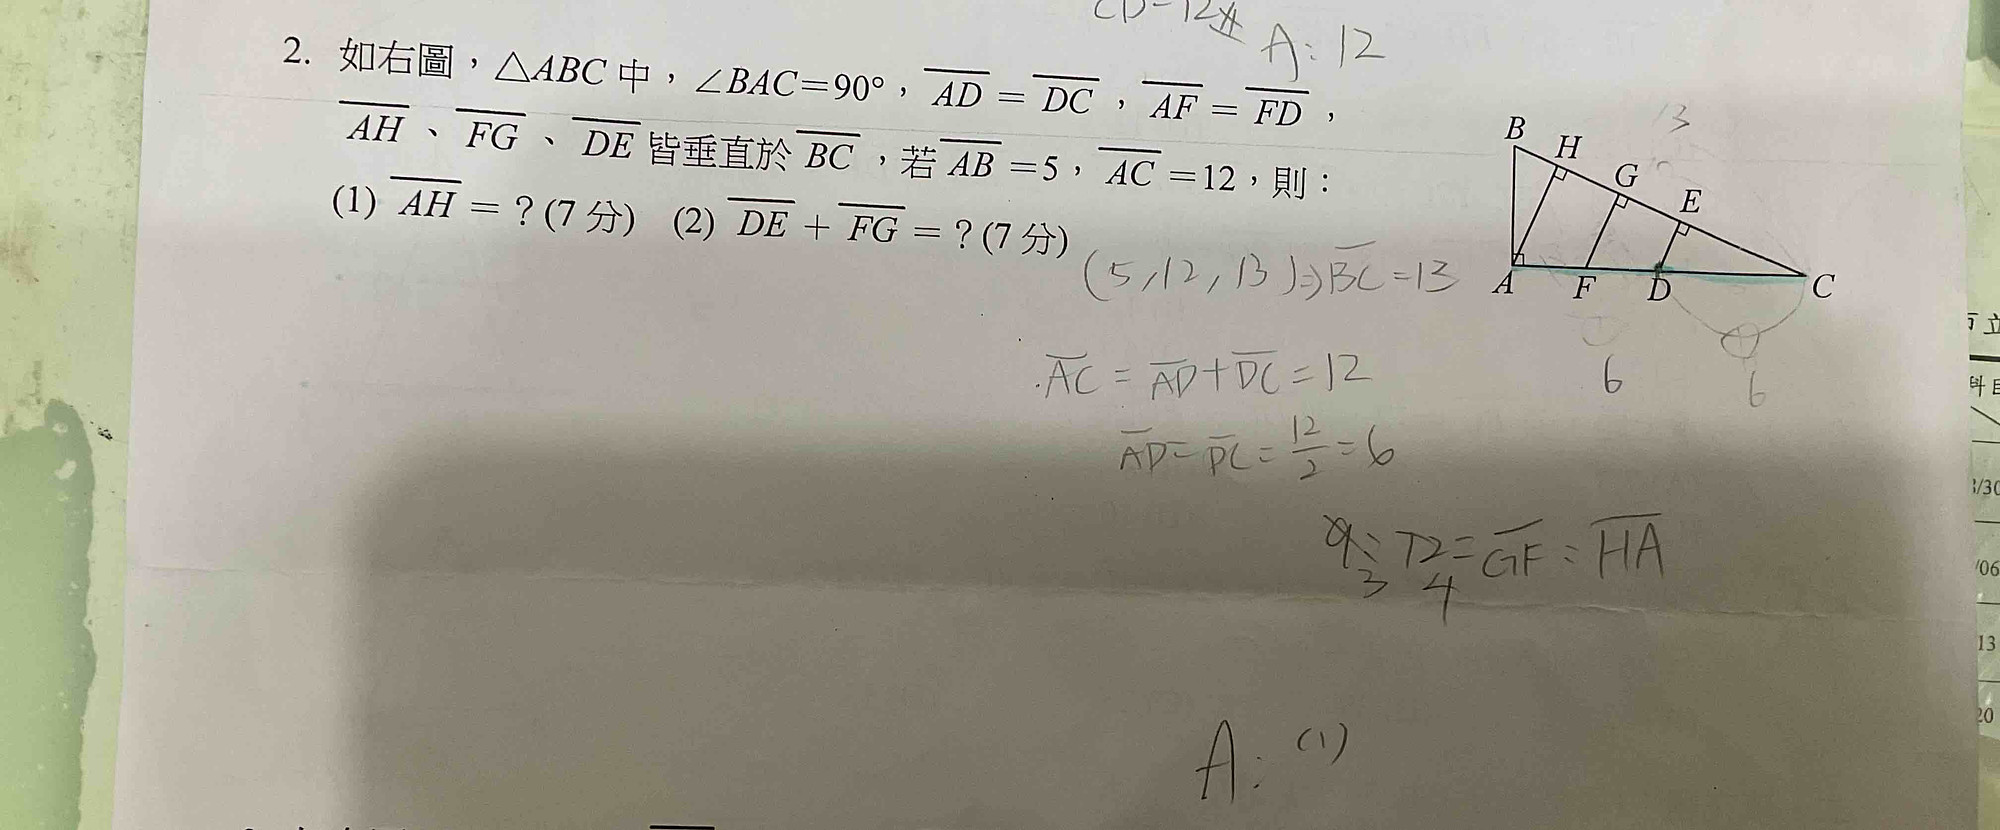 CD=12
A: 12
2. 如右圖，△ABC 中，∠BAC=90°，AD = DC，AF = FD，
AH、FG、DE 皆垂直於 BC，若 AB =5，AC =12，則：
(1) AH = ? (7 分) (2) DE + FG = ? (7 分)
13
B
H
G
E
A
F
D
C
(5,12,13)⇒BC=13
6
6
AC = AD+DC=12
AD=DC=12/2=6
9:12=GF:HA
3 4
A: (1)
科目
/06
13
20